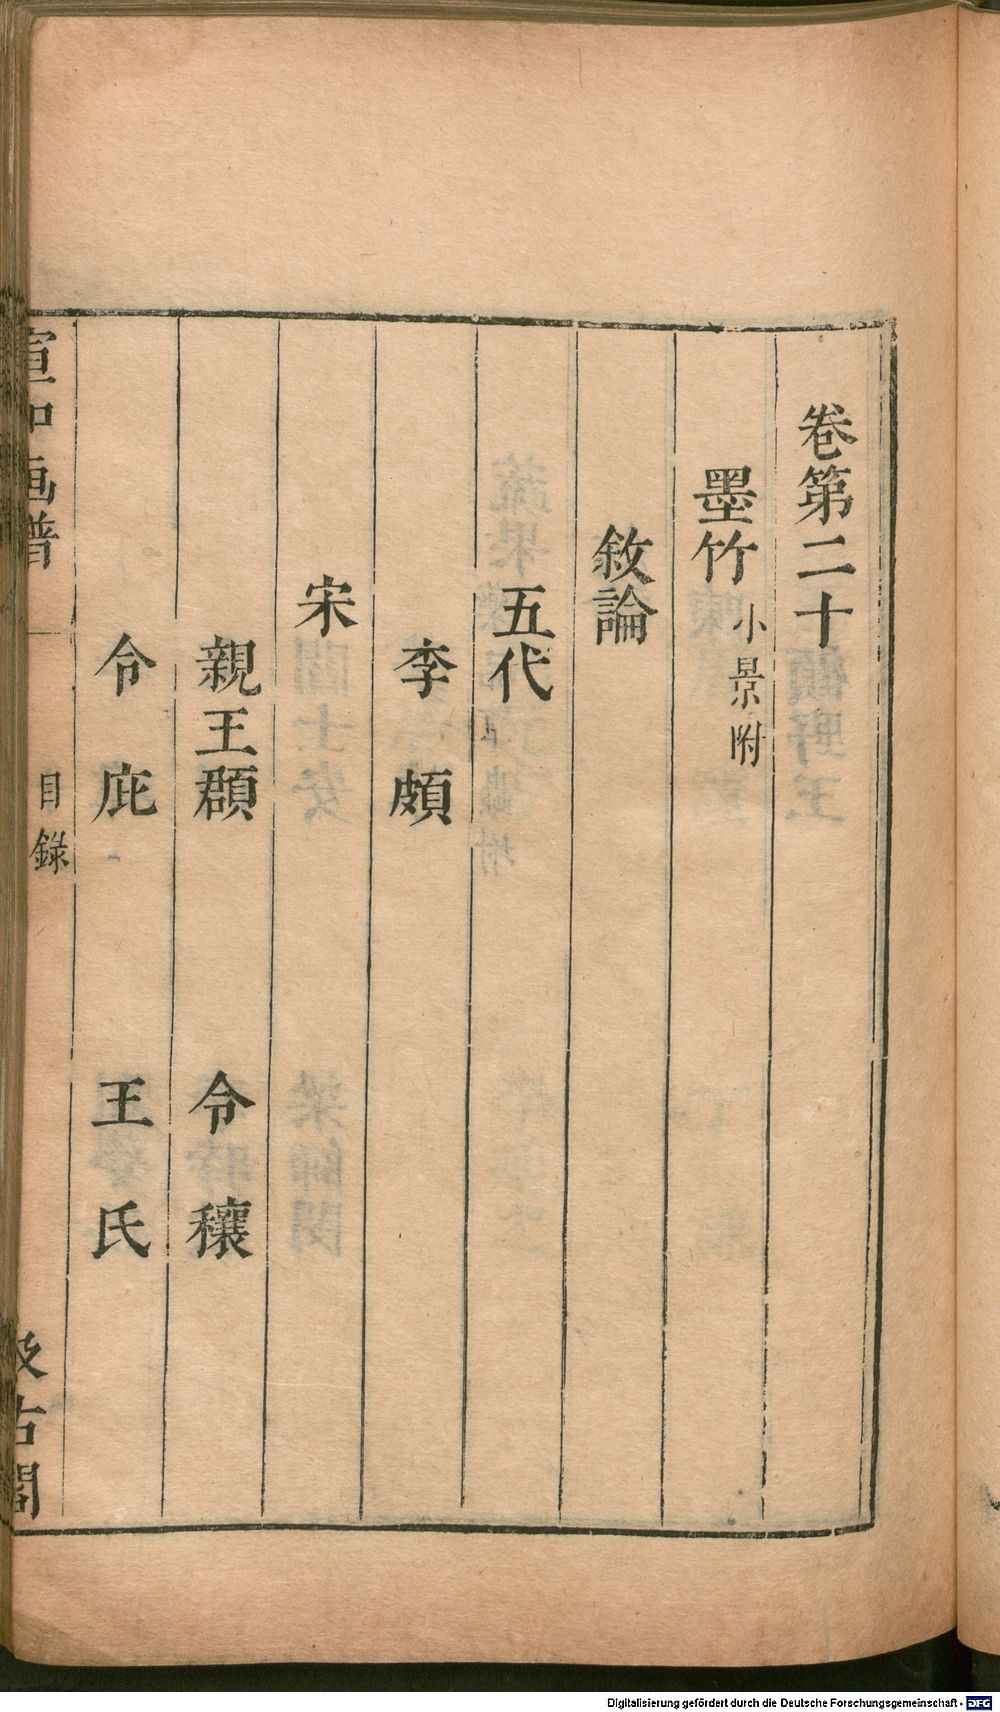 卷第二十
墨竹 小景附
敘論
五代
李頗
宋
親王頵 令穰
令庇 王氏
宣和画譜 目錄 汲古閣
Digitalisierung gefördert durch die Deutsche Forschungsgemeinschaft - DFG